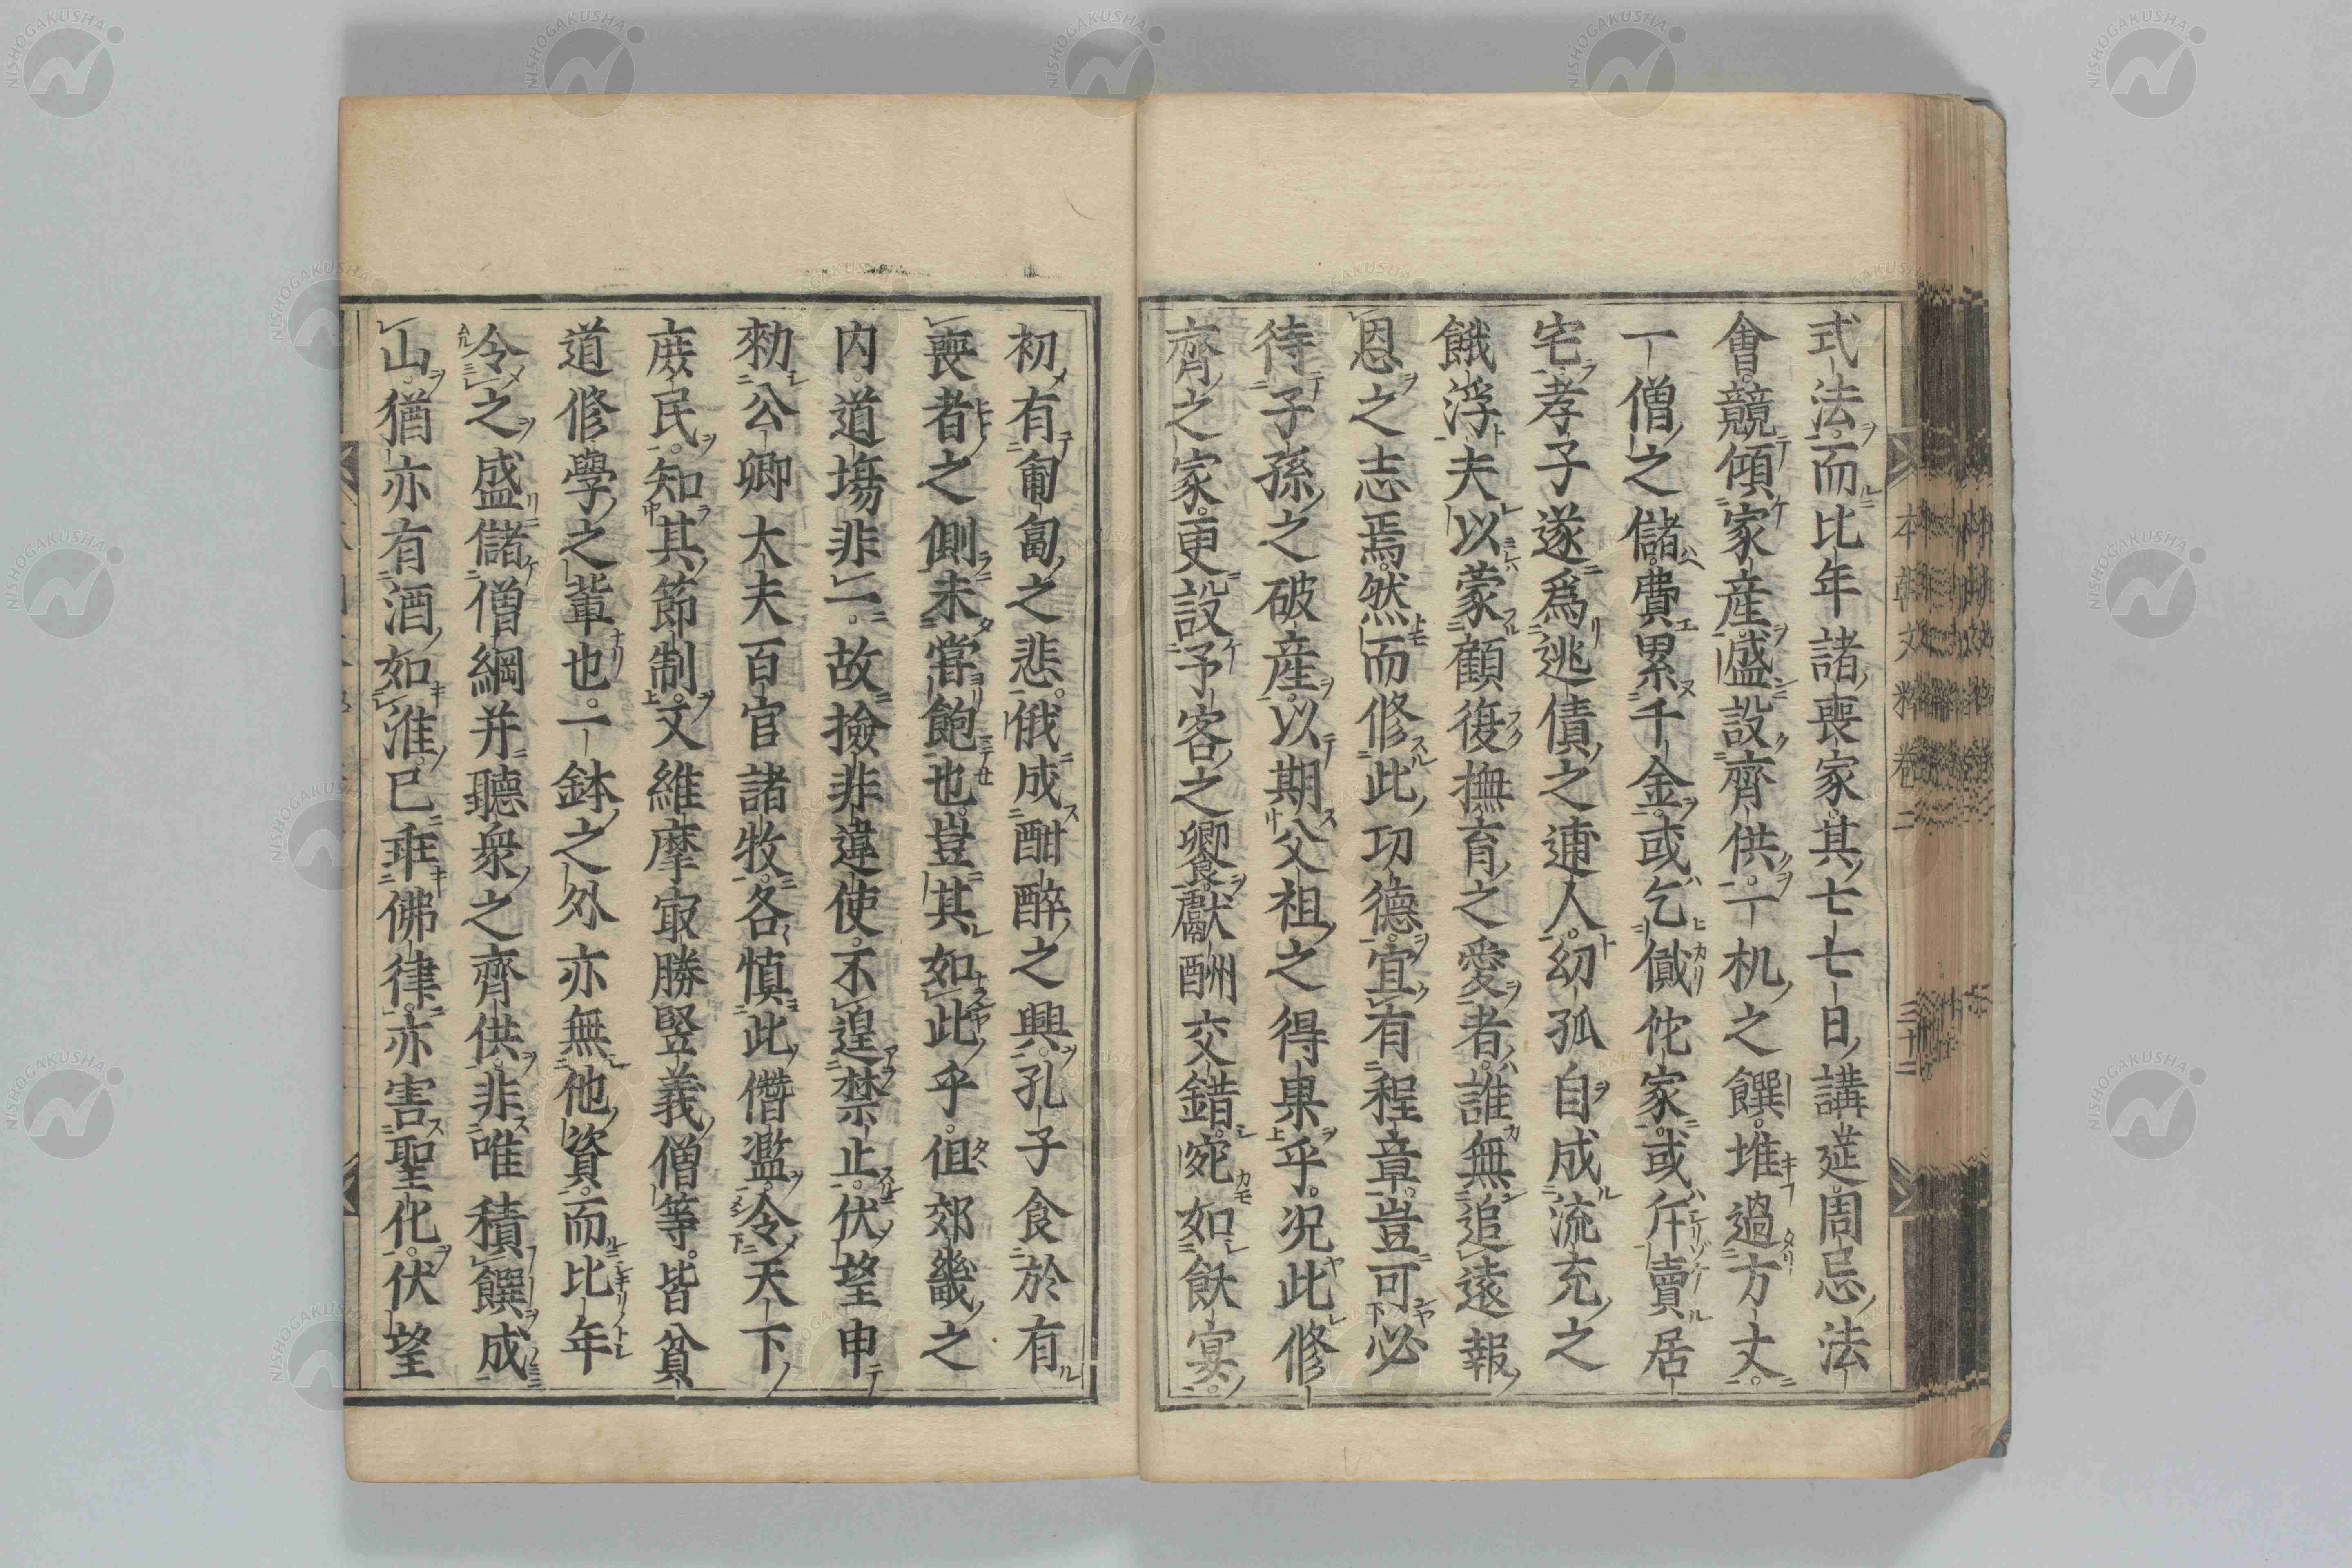 式法而比年諸喪家其七七日講莚周忌法
會競傾家産盛設齊供一机之饌堆過方丈
一僧之儲費累千金或乞儎佗家或斥賣居
宅孝子遂爲逃債之逋人幼孤自成流充之
餓浮夫以蒙顧復撫育之愛者誰無追遠報
恩之志焉然而修此功德宜有程章豈可必
待子孫之破産以期父祖之得果乎况此修
齊之家更設予客之饗獻酬交錯宛如飫宴
初有匍匐之悲俄成酣醉之興孔子食於有
喪者之側未嘗飽也豈其如此乎但郊畿之
内道塲非一故撿非違使不遑禁止伏望申
勑公卿大夫百官諸牧各慎此僭濫令天下
庶民知其節制文維摩㝡勝竪義僧等皆貧
道修學之輩也一鉢之外亦無他資而比年
令之盛儲僧綱并聽衆之齊供非唯積饌成
山猶亦有酒如淮已乖佛律亦害聖化伏望
本朝文粹卷二
三十二
NISHOGAKUSHA